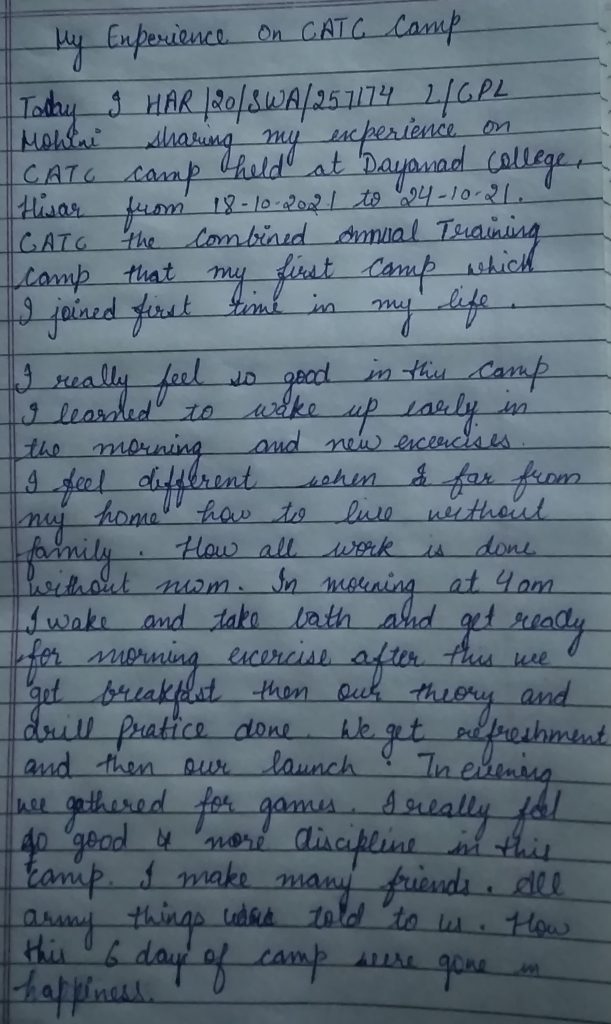 My Enperience on CATC Camp
Today I HAR/20/SWA/257174 L/CPL
Mohini sharing my experience on
CATC camp held at Dayanad College,
Hisar from 18-10-2021 to 24-10-21.
CATC the Combined Annual Training
camp that my first camp which
I joined first time in my life.
I really feel so good in this camp
I learned to wake up early in
the morning and new excercises.
I feel different when I far from
my home how to live without
family. How all work is done
without mom. In morning at 4am
I wake and take bath and get ready
for morning excercise after this we
get breakfast then our theory and
drill pratice done. We get refreshment
and then our launch. In evening
we gathered for games. I really feel
so good & more discipline in this
camp. I make many friends. All
army things were told to us. How
this 6 day of camp were gone in
happiness.